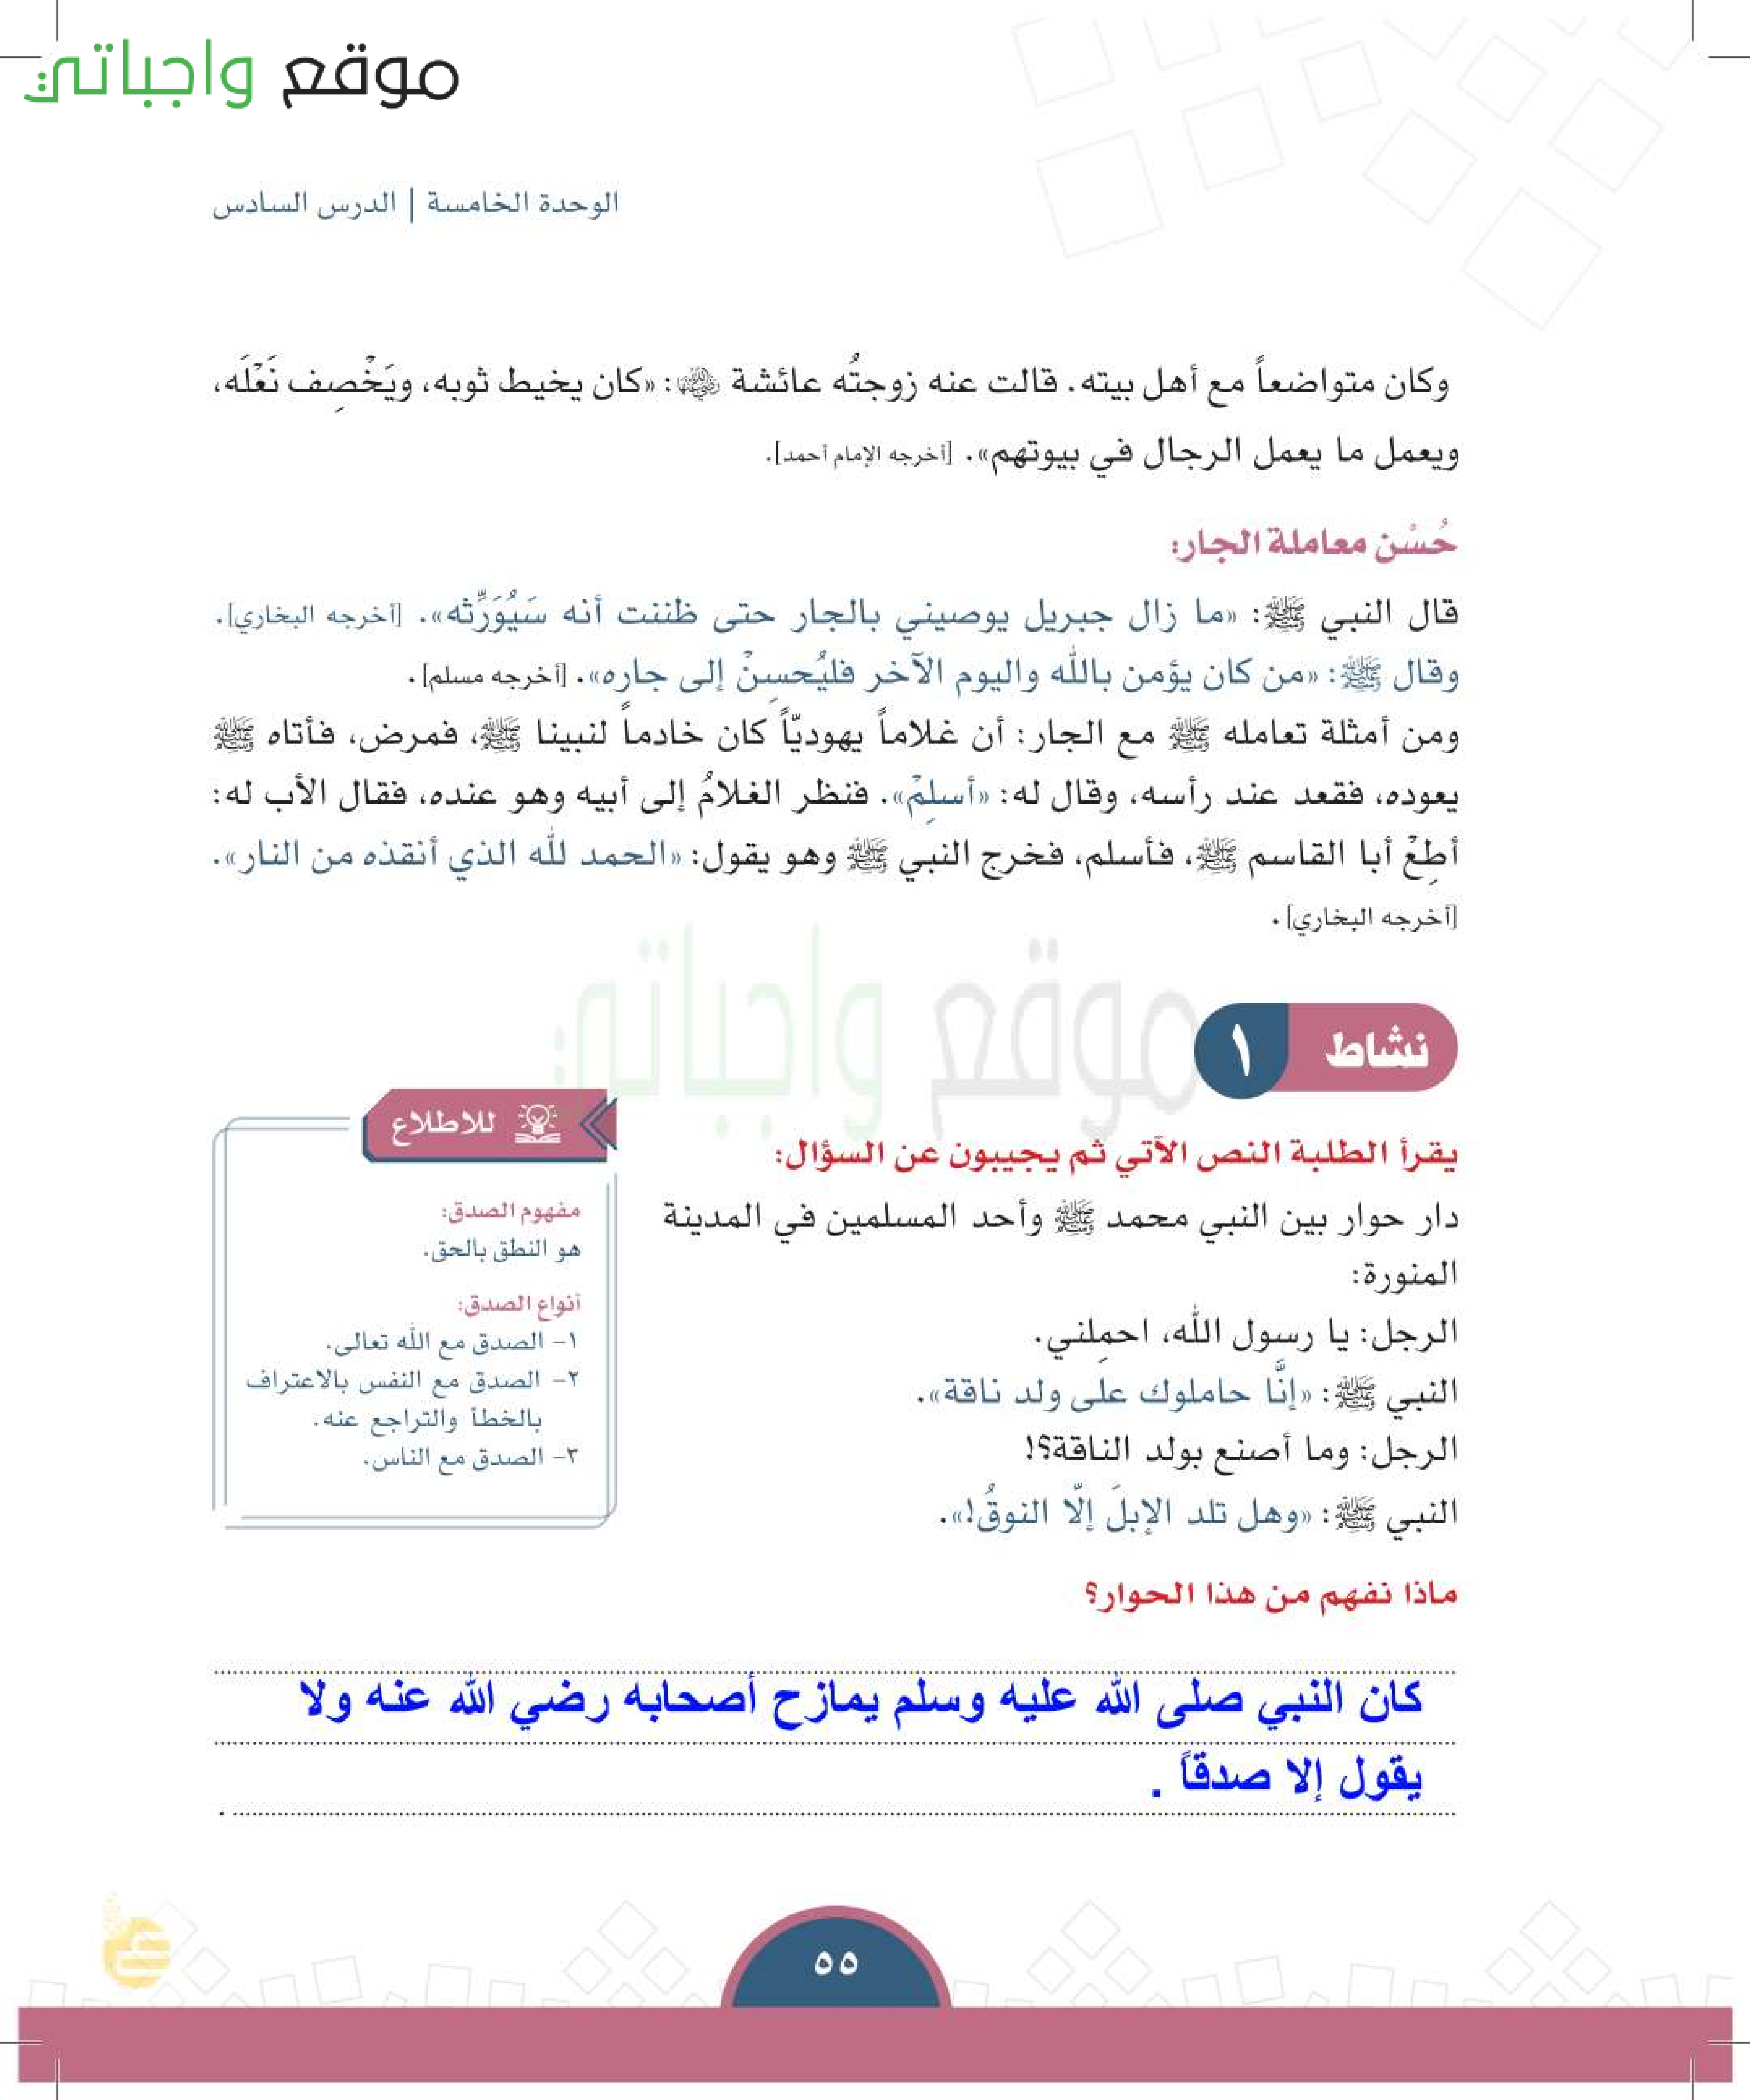 موقع واجباتي
الوحدة الخامسة | الدرس السادس
وكان متواضعاً مع أهل بيته. قالت عنه زوجتُه عائشة رضي الله عنها: «كان يخيط ثوبه، ويَخْصِف نَعْلَه،
ويعمل ما يعمل الرجال في بيوتهم». [أخرجه الإمام أحمد].
حُسْن معاملة الجار:
قال النبي ﷺ: «ما زال جبريل يوصيني بالجار حتى ظننت أنه سَيُوَرِّثه». [أخرجه البخاري].
وقال ﷺ: «من كان يؤمن بالله واليوم الآخر فليُحسِنْ إلى جاره». [أخرجه مسلم].
ومن أمثلة تعامله ﷺ مع الجار: أن غلاماً يهوديّاً كان خادماً لنبينا ﷺ، فمرض، فأتاه ﷺ
يعوده، فقعد عند رأسه، وقال له: «أسلِمْ». فنظر الغلامُ إلى أبيه وهو عنده، فقال الأب له:
أطِعْ أبا القاسم ﷺ، فأسلم، فخرج النبي ﷺ وهو يقول: «الحمد لله الذي أنقذه من النار».
[أخرجه البخاري].
موقع واجباتي
نشاط ١
يقرأ الطلبة النص الآتي ثم يجيبون عن السؤال:
دار حوار بين النبي محمد ﷺ وأحد المسلمين في المدينة
المنورة:
الرجل: يا رسول الله، احمِلني.
النبي ﷺ: «إنَّا حاملوك على ولد ناقة».
الرجل: وما أصنع بولد الناقة؟!
النبي ﷺ: «وهل تلد الإبلَ إلّا النوقُ!».
للاطلاع
مفهوم الصدق:
هو النطق بالحق.
أنواع الصدق:
١- الصدق مع الله تعالى.
٢- الصدق مع النفس بالاعتراف
بالخطأ والتراجع عنه.
٣- الصدق مع الناس.
ماذا نفهم من هذا الحوار؟
كان النبي صلى الله عليه وسلم يمازح أصحابه رضي الله عنه ولا
يقول إلا صدقاً .
٥٥